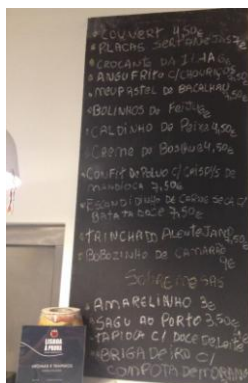 COUVERT 4,50€
PLACAS SERTANEJAS
CROCANTE DA ILHA
ANGU FRITO C/CHOURIÇO
MEU PASTEL DE BACALHAU
4,50€
BOLINHOS DE FEIJOADA
CALDINHO DE Peixe 4,50€
Creme de Bosque 4,50€
CONFIT de Polvo C/CRISPS DE
MANDIOCA 7,50€
ESCONDIDINHO DE CARNE SECA C/
BATATA DOCE 7,50€
TRINCHADO ALENTEJANO
BOBOZINHO DE CAMARÃO
9€
Sobremesas
AMARELINHO 3€
SAGU AO PORTO 3,50€
TAPIOCA C/ DOCE DE LEITE
BRIGADEIRO C/
COMPOTA DE MORANGO
LISBOA
À PROVA